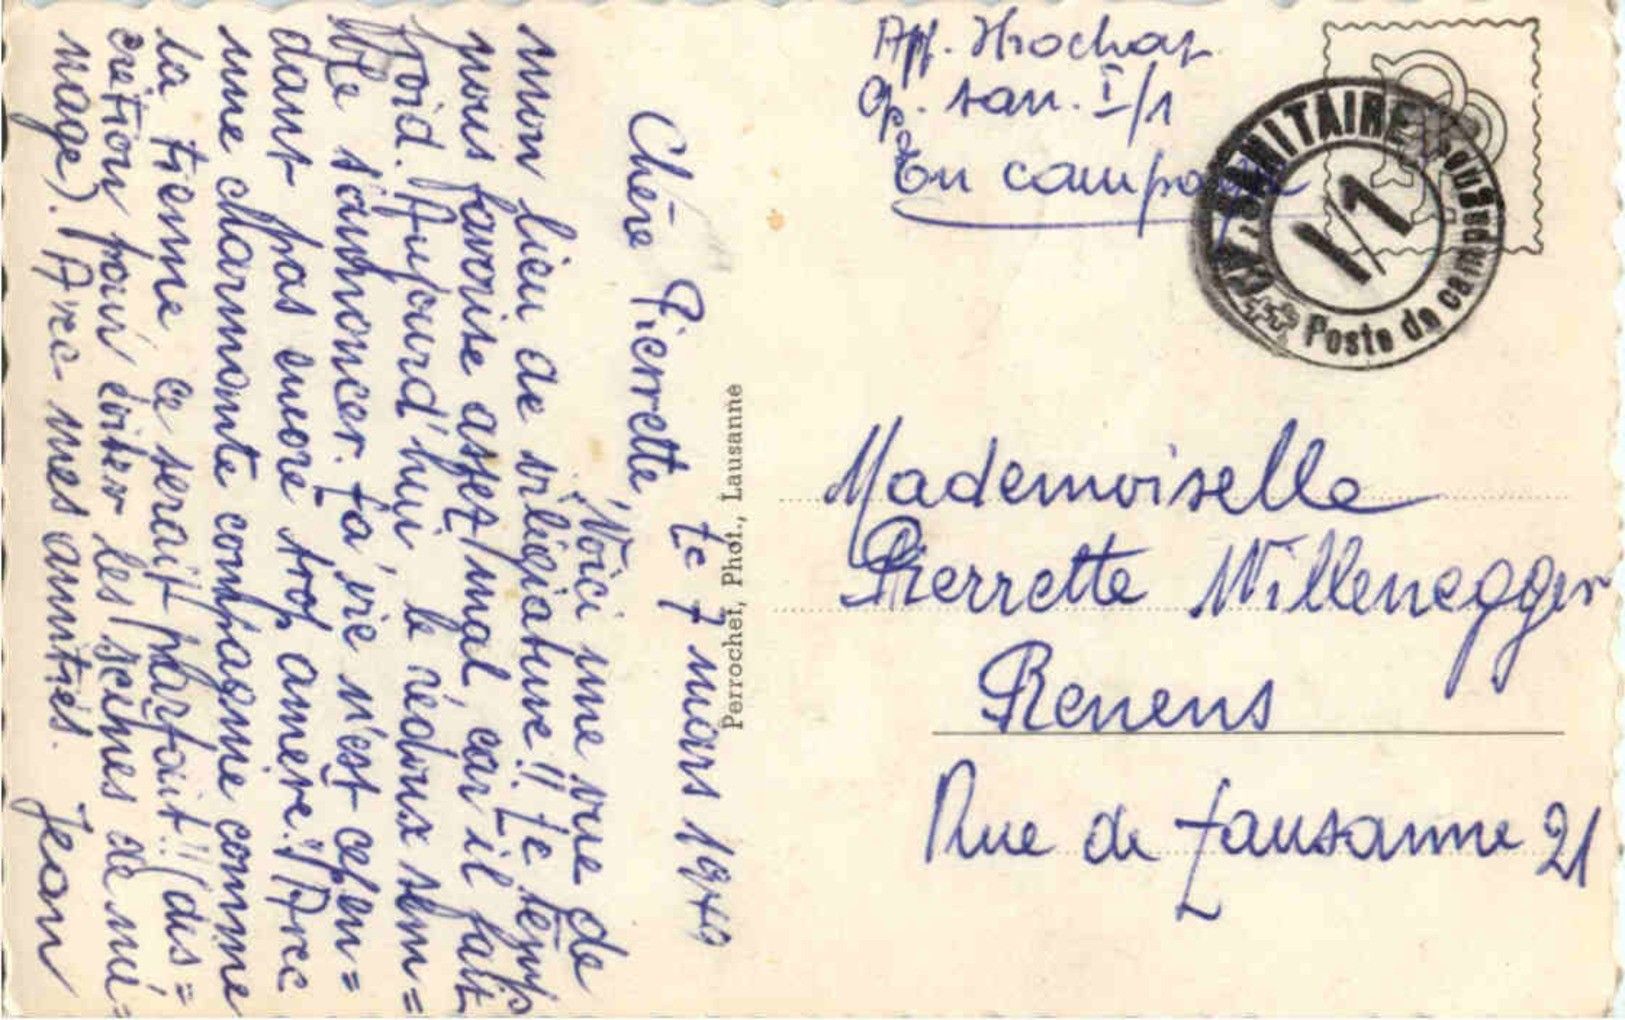 Le 7 mars 1949
Chère Pierrette,
Voici une vue de
mon lieu de villégiature!! Le temps
nous favorise assez mal, car il fait
froid. Aujourd'hui, le rédoux sem=
ble s'annoncer. La vie n'est cepen=
dant pas encore trop amère. Avec
une charmante compagnie comme
la tienne ce serait parfait!! (dis=
crétion pour éviter les scènes de mé=
nage). Avec mes amitiés.
Jean
Perrochet, Phot., Lausanne
App. Hrochat
Gp. san. I/1
En campagne
SANITAIRE
I/1
Poste de campagne
Mademoiselle
Pierrette Willenegger
Renens
Rue de Lausanne 21